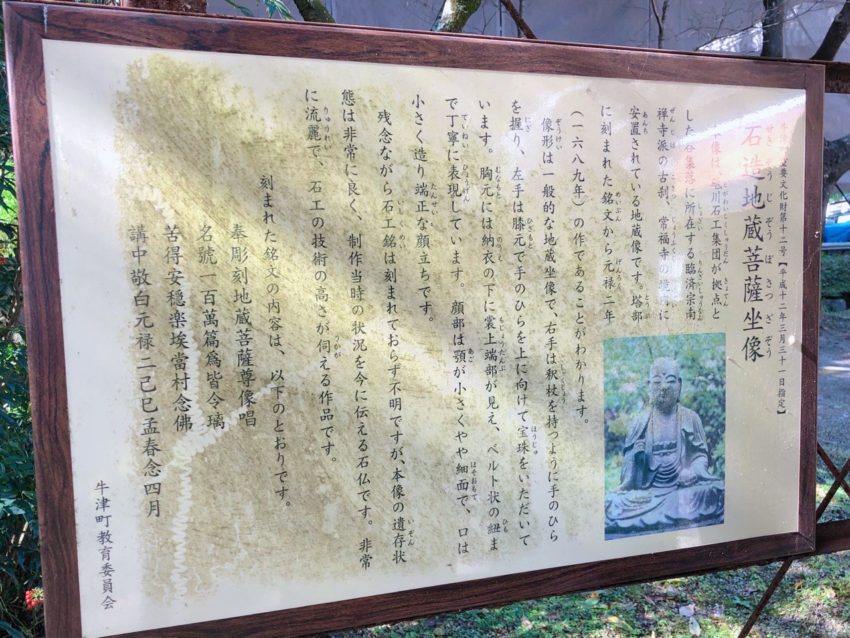 要文化財第十二号【平成十二年三月三十一日指定】
石造地蔵菩薩坐像
せきぞうじぞうぼさつざぞう
本像は、砥川石工集団が拠点と
した谷集落に所在する臨済宗南
禅寺派の古刹、常福寺の境内に
安置されている地蔵像です。塔部
に刻まれた銘文から元禄二年
(一六八九年)の作であることがわかります。
像形は一般的な地蔵坐像で、右手は釈杖を持つように手のひら
を握り、左手は膝元で手のひらを上に向けて宝珠をいただいて
います。胸元には納衣の下に裳上端部が見え、ベルト状の紐ま
で丁寧に表現しています。顔部は顎が小さくやや細面で、口は
小さく造り端正な顔立ちです。
残念ながら石工銘は刻まれておらず不明ですが、本像の遺存状
態は非常に良く、制作当時の状況を今に伝える石仏です。非常
に流麗で、石工の技術の高さが伺える作品です。
刻まれた銘文の内容は、以下のとおりです。
奉彫刻地蔵菩薩尊像唱
名號一百萬篇為皆令璃
苦得安穏楽埃當村念佛
講中敬白元禄二己巳孟春念四月
牛津町教育委員会